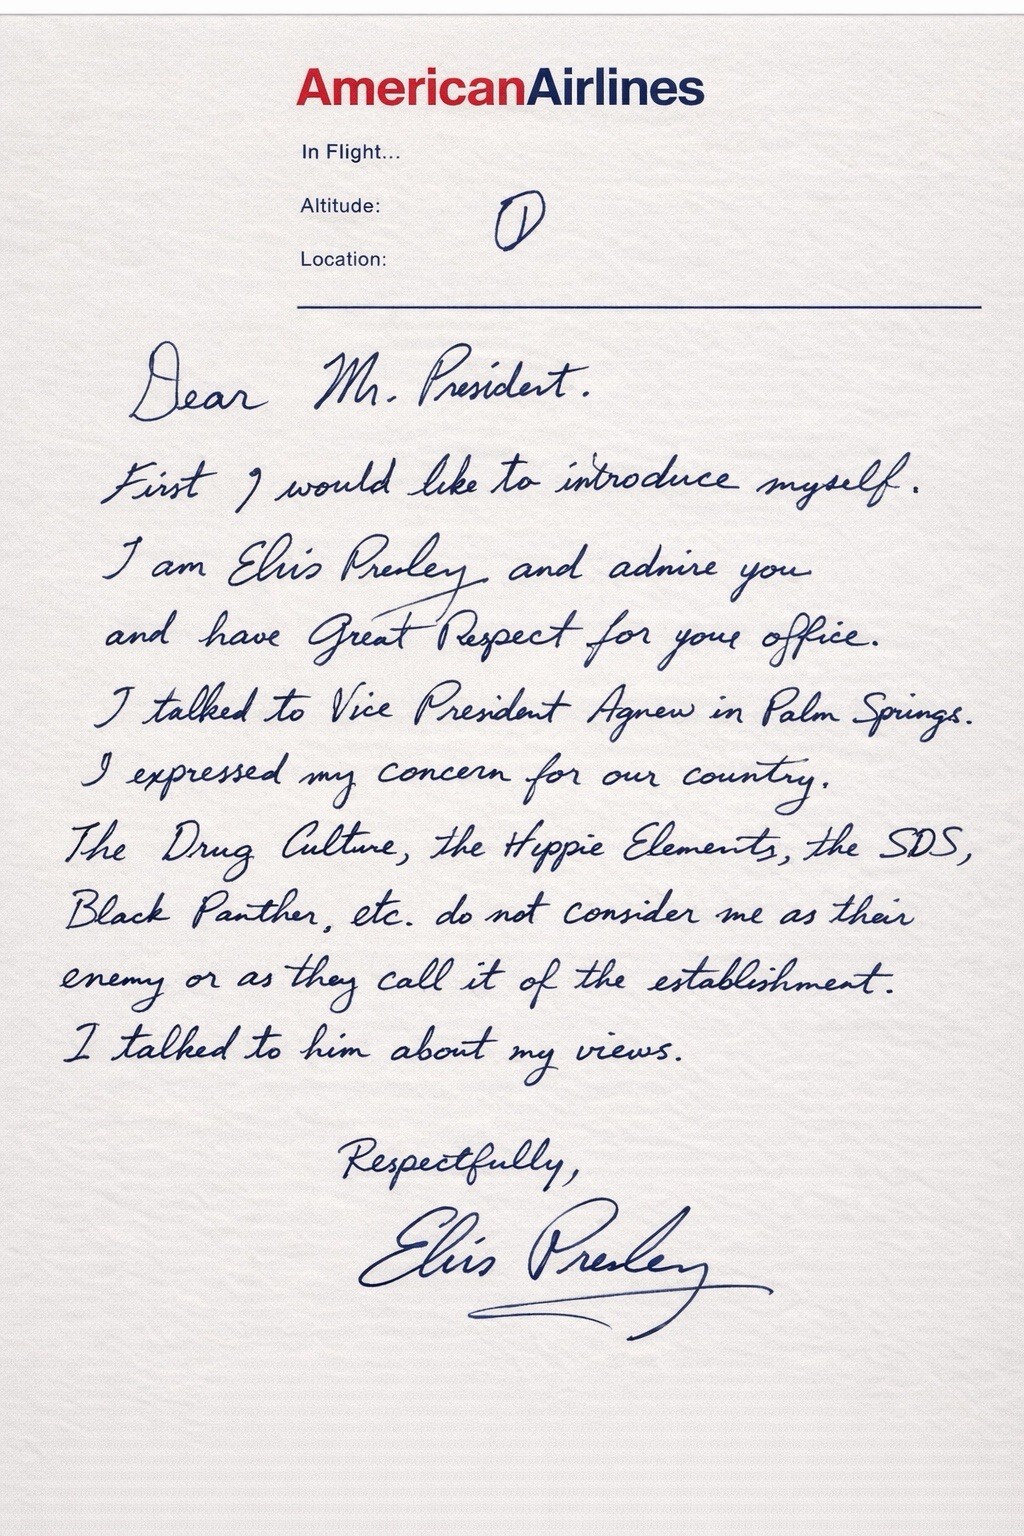 AmericanAirlines
In Flight...
Altitude:
1
Location:
Dear Mr. President.
First I would like to introduce myself.
I am Elvis Presley and admire you
and have Great Respect for your office.
I talked to Vice President Agnew in Palm Springs.
I expressed my concern for our country.
The Drug Culture, the Hippie Elements, the SDS,
Black Panther, etc. do not consider me as their
enemy or as they call it of the establishment.
I talked to him about my views.
Respectfully,
Elvis Presley